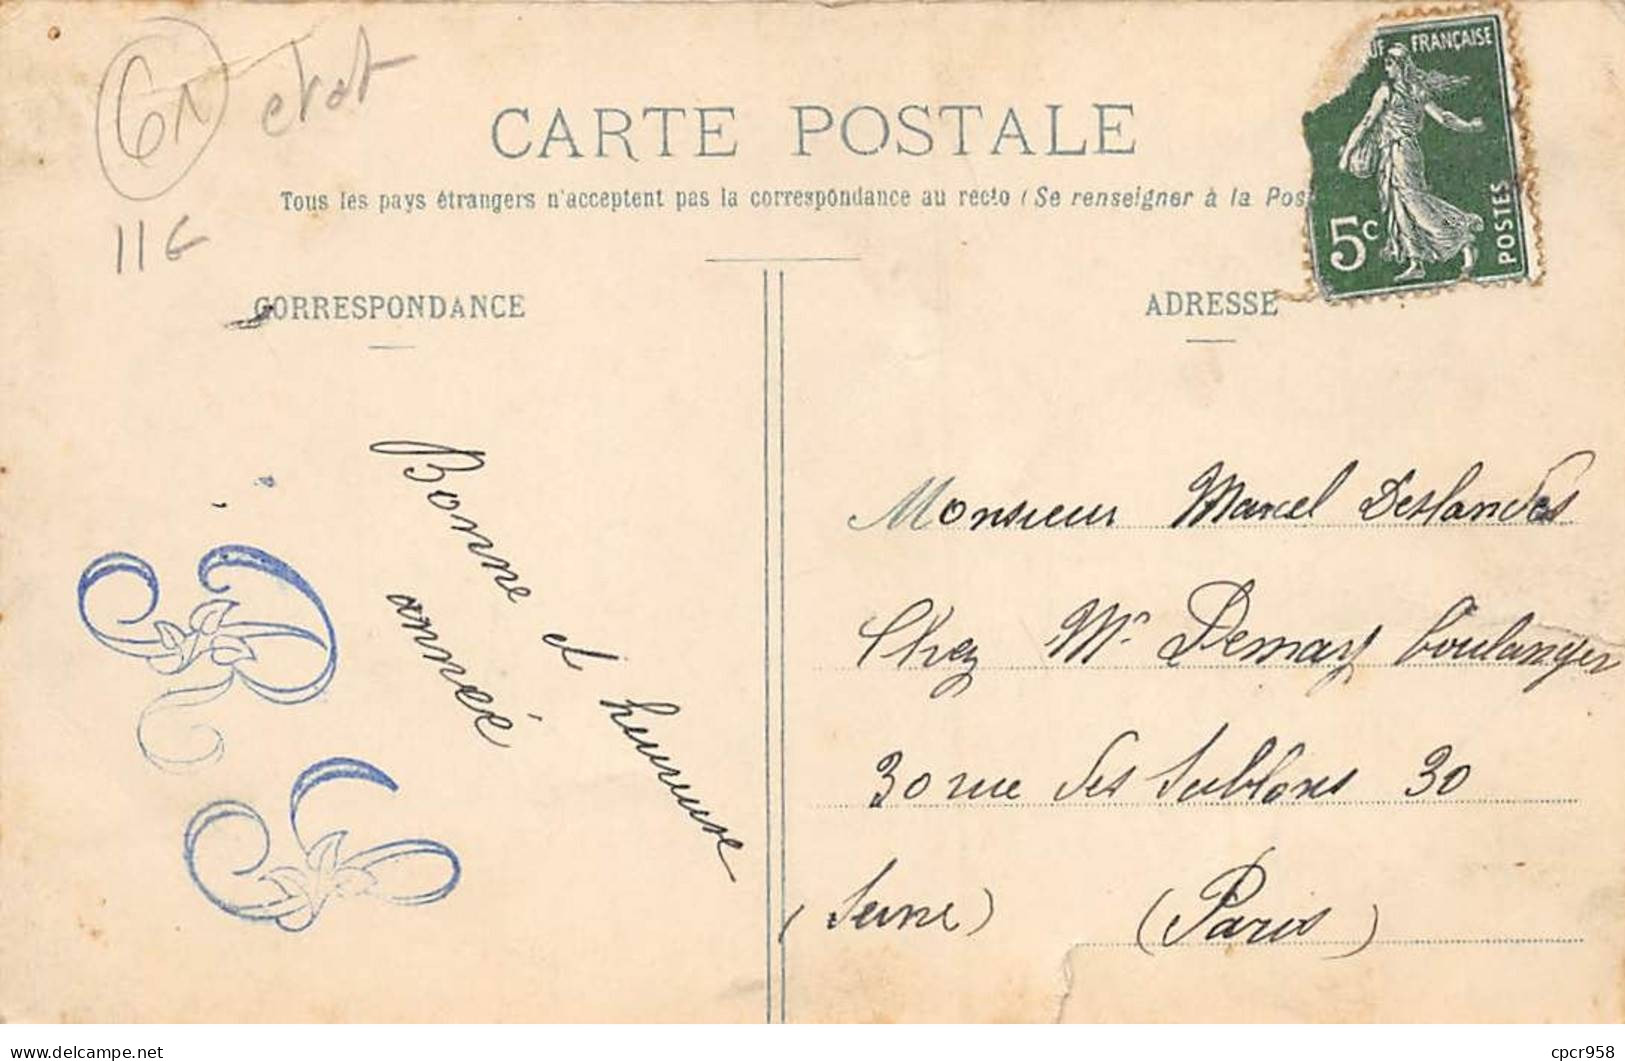 61
etat
11€
CARTE POSTALE
Tous les pays étrangers n'acceptent pas la correspondance au recto (Se renseigner à la Pos
UF FRANÇAISE
5c
POSTES
CORRESPONDANCE
ADRESSE
Bonne et heureuse
année
R
Monsieur Marcel Deslandes
Chez Mr Demay boulanger
30 rue des Sablons 30
(Seine) (Paris)
delcampe.net
cpcr958